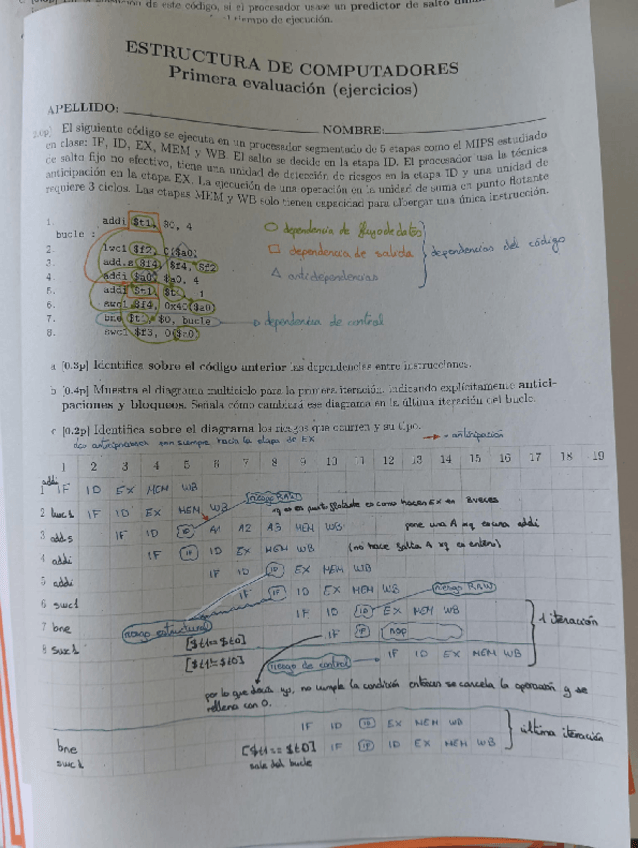 de este código, si el procesador usase un predictor de salto
tiempo de ejecución.
ESTRUCTURA DE COMPUTADORES
Primera evaluación (ejercicios)
APELLIDO: NOMBRE:
El siguiente código se ejecuta en un procesador segmentado de 5 etapas como el MIPS estudiado
en clase: IF, ID, EX, MEM y WB. El salto se decide en la etapa ID. El procesador usa la técnica
de salto fijo no efectivo, tiene una unidad de detección de riesgos en la etapa ID y una unidad de
anticipación en la etapa EX. La ejecución de una operación en la unidad de suma en punto flotante
requiere 3 ciclos. Las etapas MEM y WB solo tienen capacidad para albergar una única instrucción.
1. addi $t1, $0, 4
bucle :
2. lwc1 $f2, 0($a0)
3. add.s $f4, $f4, $f2
4. addi $a0, $a0, 4
5. addi $t1, $t1, -1
6. swc1 $f4, 0x40($a0)
7. bne $t1, $0, bucle
8. swc1 $f3, 0($a0)
dependencia de flujo de datos
dependencia de salida
antidependencias
dependencias del código
dependencia de control
a [0.3p] Identifica sobre el código anterior las dependencias entre instrucciones.
b [0.4p] Muestra el diagrama multiciclo para la primera iteración, indicando explícitamente antici-
paciones y bloqueos. Señala cómo cambiará ese diagrama en la última iteración del bucle.
c [0.2p] Identifica sobre el diagrama los riesgos que ocurren y su tipo.
siempre hacia la etapa de EX
= anticipación
1 2 3 4 5 6 7 8 9 10 11 12 13 14 15 16 17 18 19
1 addi IF ID EX MEM WB
2 lwc1 IF ID EX MEM WB riesgo RAW
en punto flotante es como hacer EX en 3 veces
3 add.s IF ID ID A1 A2 A3 MEM WB pone una A xq es una addi
4 addi IF IF ID EX MEM WB (no hace falta A xq es entero)
5 addi IF ID ID EX MEM WB
6 swc1 IF IF ID EX MEM WB riesgo RAW
7 bne riesgo estructural IF ID ID EX MEM WB
1 iteración
8 swc1 [$t1== $t0] IF IF nop
[$t1!= $t0] riesgo de control IF ID EX MEM WB
por lo que no cumple la condición entonces se cancela la operación y se
rellena con 0.
bne IF ID ID EX MEM WB
última iteración
swc1 [$t1 == $t0] IF IF ID EX MEM WB
sale del bucle